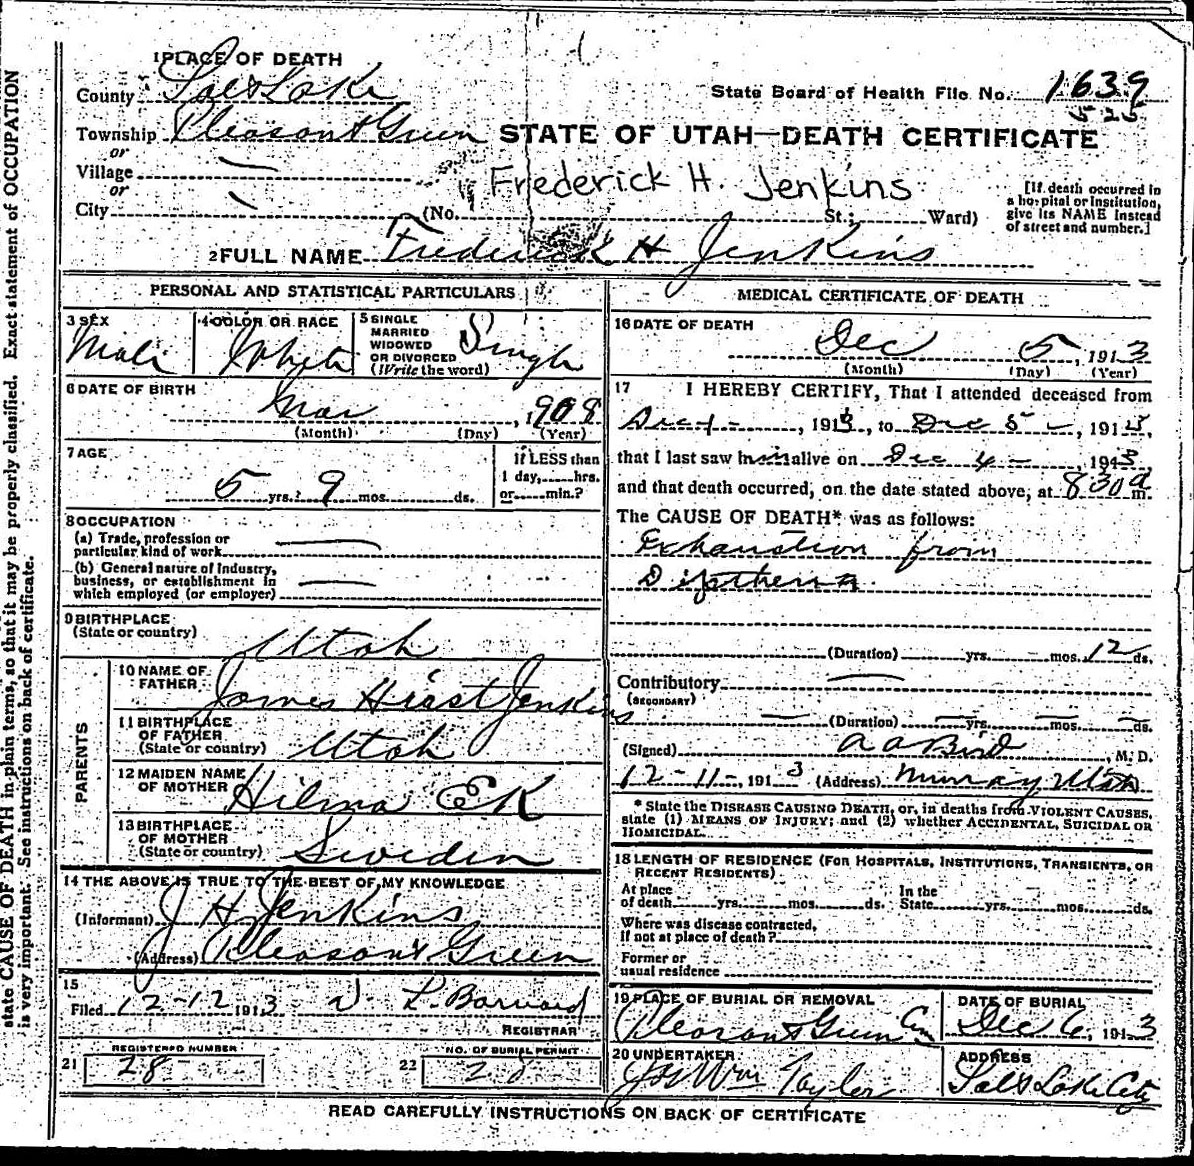 state CAUSE OF DEATH in plain terms, so that it may be properly classified. Exact statement of OCCUPATION
is very important. See instructions on back of certificate.
1 PLACE OF DEATH
County Salt Lake
State Board of Health File No. 1639
525
Township Pleasant Green
STATE OF UTAH—DEATH CERTIFICATE
or
Village —
or
Frederick H. Jenkins
City
(No. St.; Ward)
[If death occurred in
a hospital or institution,
give its NAME instead
of street and number.]
2 FULL NAME Frederick H Jenkins
PERSONAL AND STATISTICAL PARTICULARS
3 SEX
Male
4 COLOR OR RACE
White
5 SINGLE
MARRIED
WIDOWED
OR DIVORCED
(Write the word)
Single
6 DATE OF BIRTH
Mar , 1908
(Month) (Day) (Year)
7 AGE
5 yrs. 9 mos. ds.
If LESS than
1 day, hrs.
or min.?
8 OCCUPATION
(a) Trade, profession or
particular kind of work —
(b) General nature of industry,
business, or establishment in
which employed (or employer) —
9 BIRTHPLACE
(State or country)
Utah
PARENTS
10 NAME OF
FATHER
James Hirst Jenkins
11 BIRTHPLACE
OF FATHER
(State or country)
Utah
12 MAIDEN NAME
OF MOTHER
Hilma Ek
13 BIRTHPLACE
OF MOTHER
(State or country)
Sweden
14 THE ABOVE IS TRUE TO THE BEST OF MY KNOWLEDGE
(Informant) J H Jenkins
(Address) Pleasant Green
15
Filed 12-12 1913
L. Barnard
REGISTRAR
REGISTERED NUMBER
21 28
NO. OF BURIAL PERMIT
22 28
MEDICAL CERTIFICATE OF DEATH
16 DATE OF DEATH
Dec 5, 1913
(Month) (Day) (Year)
17 I HEREBY CERTIFY, That I attended deceased from
Dec 4 - , 1913, to Dec 5 - , 1913,
that I last saw him alive on Dec 4 - , 1913
and that death occurred, on the date stated above, at 8 30 a m.
The CAUSE OF DEATH* was as follows:
Exhaustion from
Diptheria
(Duration) yrs. mos. 12 ds.
Contributory —
(SECONDARY)
— (Duration) — yrs. — mos. — ds.
(Signed) A A Bird, M. D.
12-11-, 1913 (Address) Murray Utah
* State the DISEASE CAUSING DEATH, or, in deaths from VIOLENT CAUSES,
state (1) MEANS OF INJURY; and (2) whether ACCIDENTAL, SUICIDAL OR
HOMICIDAL.
18 LENGTH OF RESIDENCE (FOR HOSPITALS, INSTITUTIONS, TRANSIENTS, OR
RECENT RESIDENTS)
At place
of death yrs. mos. ds.
In the
State yrs. mos. ds.
Where was disease contracted,
if not at place of death?
Former or
usual residence
19 PLACE OF BURIAL OR REMOVAL
Pleasant Green Cem
DATE OF BURIAL
Dec 6, 1913
20 UNDERTAKER
Jos Wm Taylor
ADDRESS
Salt Lake City
READ CAREFULLY INSTRUCTIONS ON BACK OF CERTIFICATE